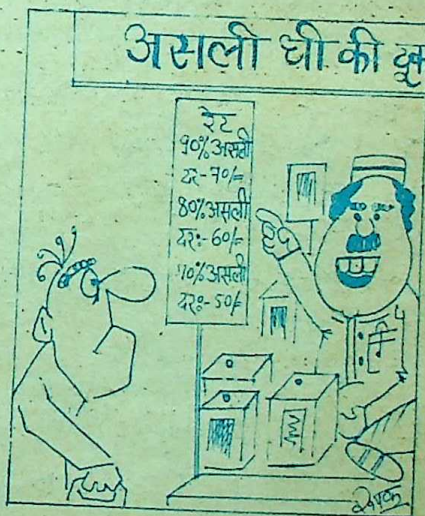 असली घी की
रेट
90% असली
दर - 70/=
80% असली
दर:- 60/=
70% असली
दर:- 50/=